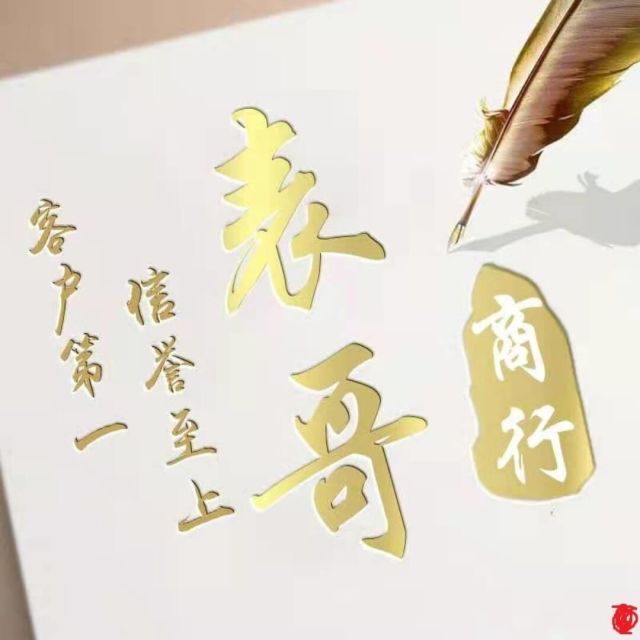 表哥
商行
信誉至上
客户第一